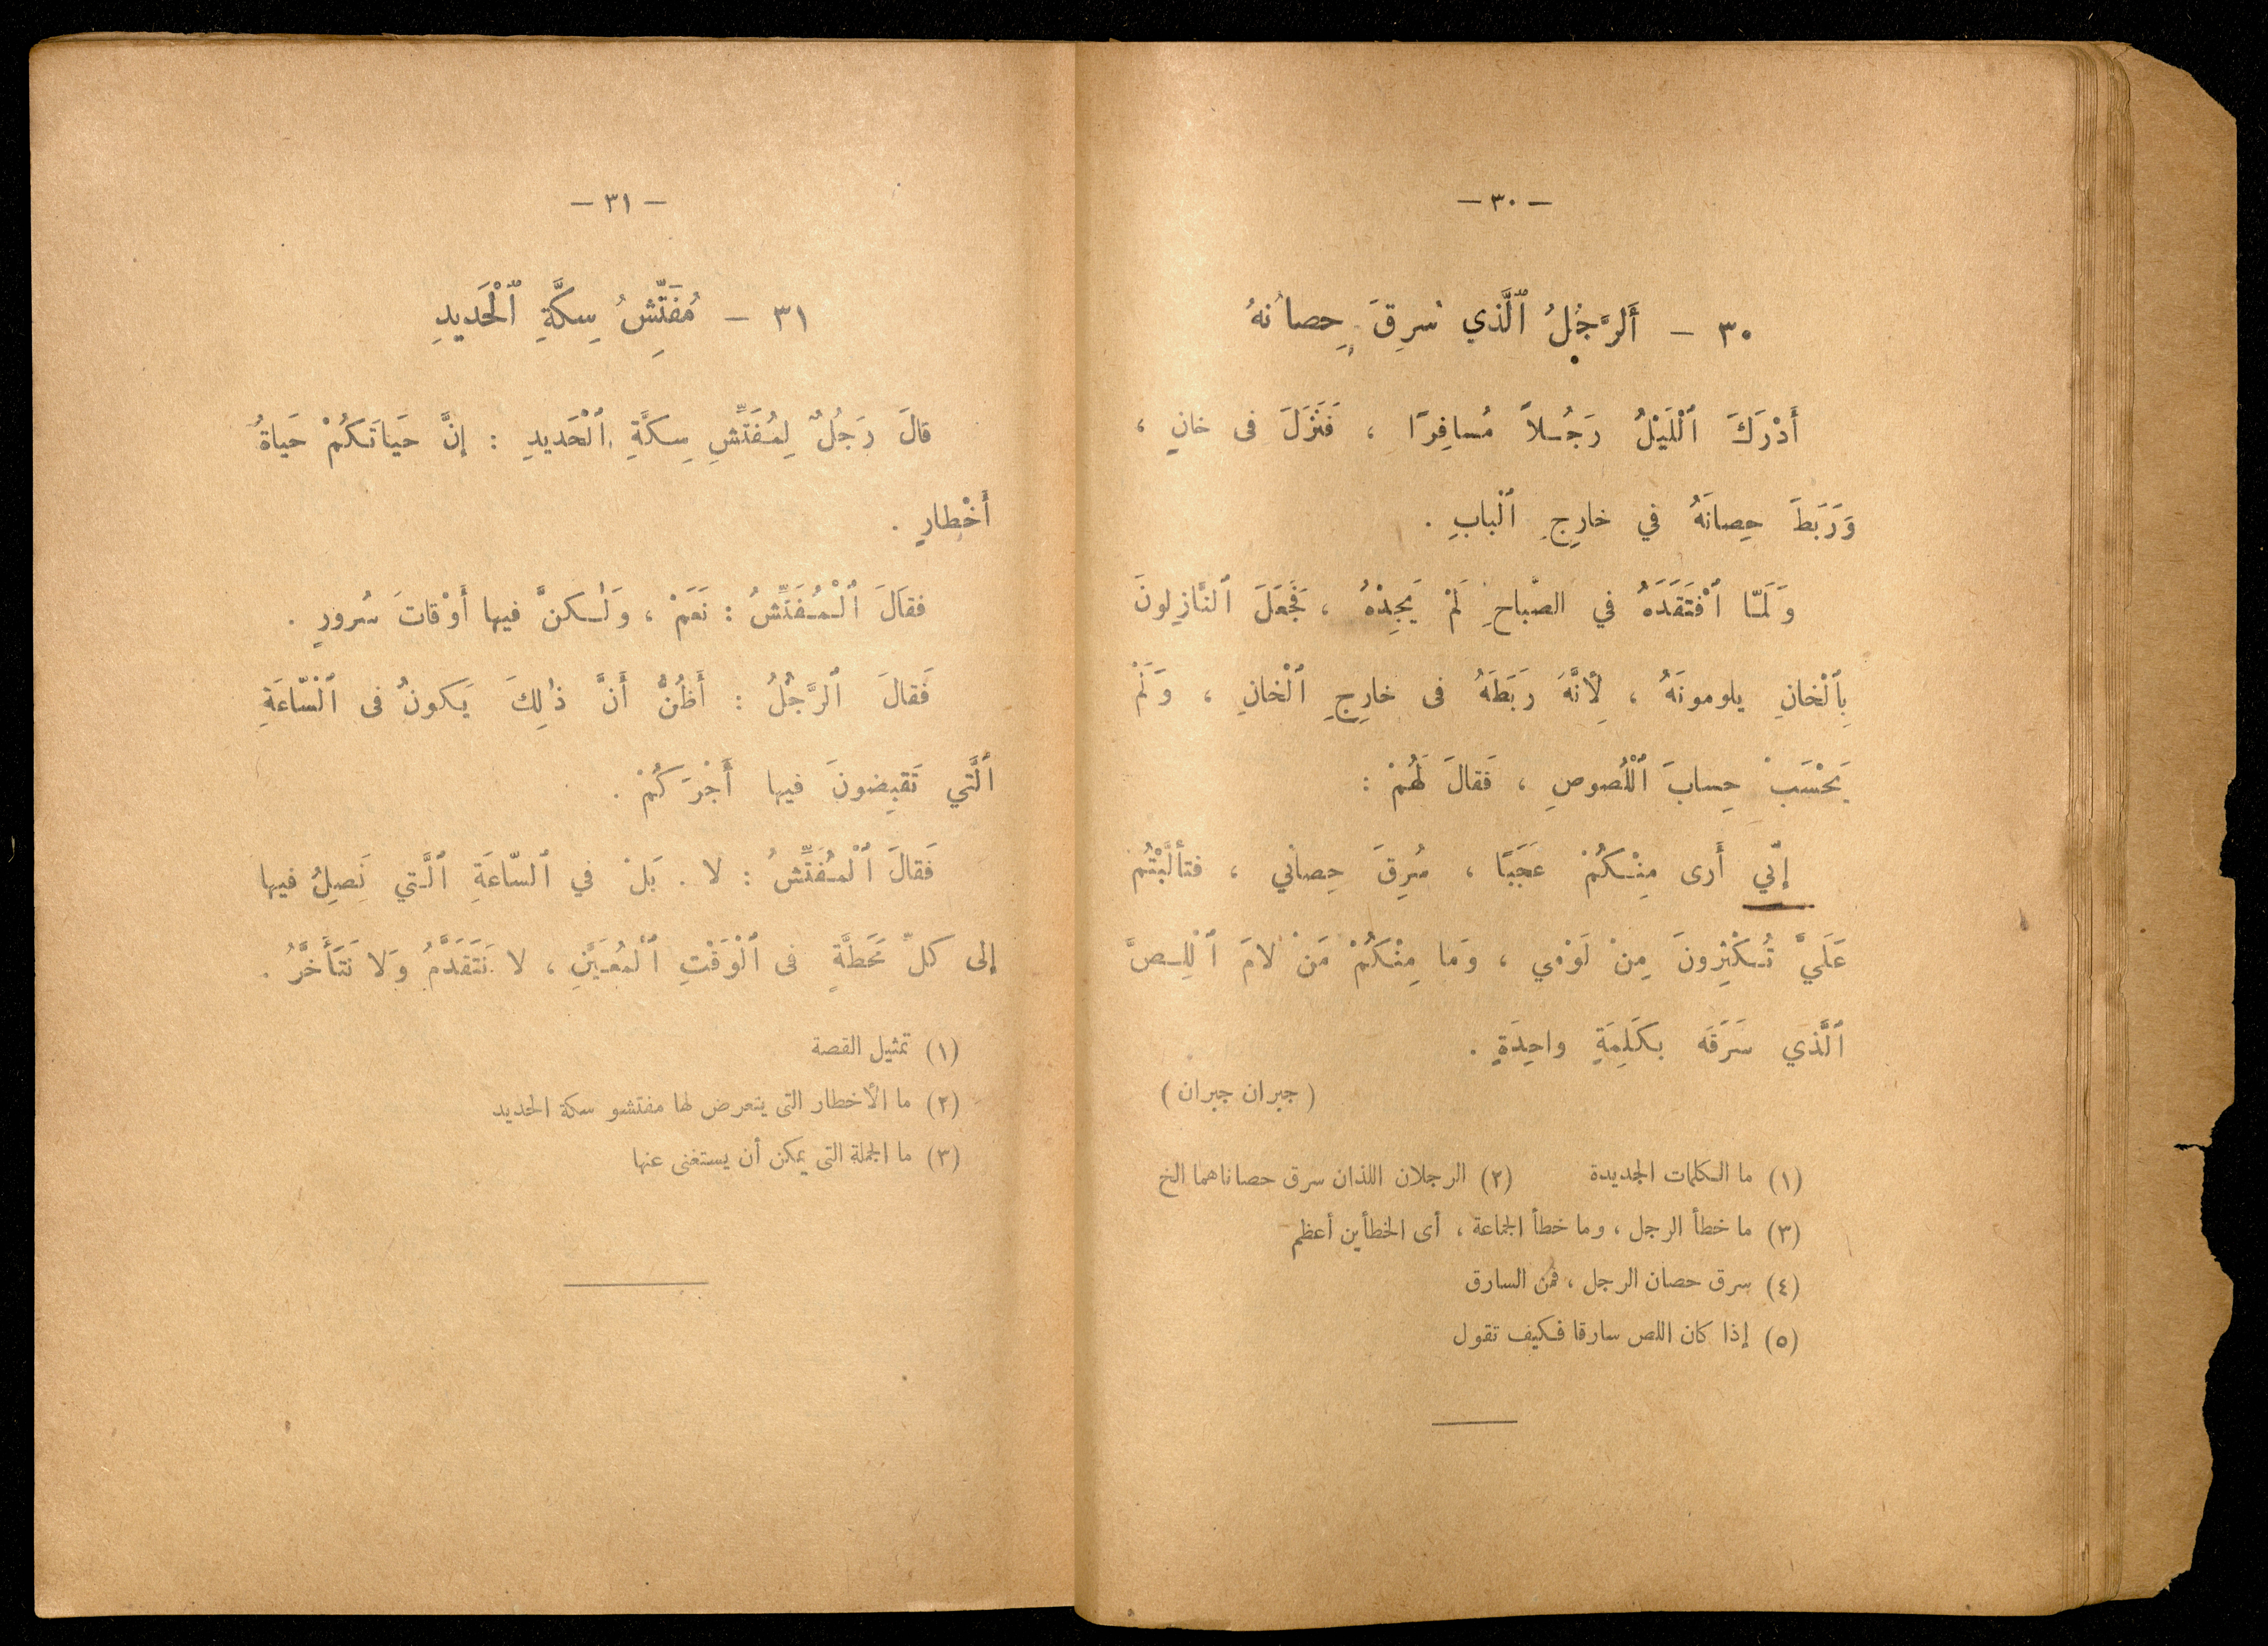 — ٣٠ —
٣٠ — أَلرَّجُلُ ٱلَّذي سُرِقَ حِصانُهُ
أَدْرَكَ ٱلْلَيْلُ رَجُلاً مُسافِرًا ، فَنَزَلَ فى خانٍ ،
وَرَبَطَ حِصانَهُ في خارِجِ ٱلْبابِ .
وَلَمّا ٱفْتَقَدَهُ في الصَّباحِ لَمْ يَجِدْهُ ، فَجَعَلَ ٱلنَّازِلونَ
بِٱلْخانِ يلومونَهُ ، لِأَنَّهُ رَبَطَهُ فى خارِجِ ٱلْخانِ ، وَلَمْ
يَحْسَبْ حِسابَ ٱلْلُصوصِ ، فَقالَ لَهُمْ :
إنّي أَرى مِنْكُمْ عَجَبًا ، سُرِقَ حِصاني ، فتألَّبْتُمْ
عَلَيَّ تُكْثِرونَ مِنْ لَوْمي ، وَما مِنْكُمْ مَنْ لامَ ٱلْلِصَّ
ٱلَّذي سَرَقَه بكَلِمَةٍ واحِدَةٍ .
( جبران جبران )
(١) ما الكلمات الجديدة (٢) الرجلان اللذان سرق حصاناهما الخ
(٣) ما خطأ الرجل ، وما خطأ الجماعة ، أى الخطأين أعظم
(٤) سرق حصان الرجل ، فمن السارق
(٥) إذا كان اللص سارقا فكيف تقول
— ٣١ —
٣١ — مُفَتِّشُ سِكَّةِ ٱلْحَديدِ
قالَ رَجُلٌ لِمُفَتِّشِ سِكَّةِ ٱلْحَديدِ : إنَّ حَياتَكُمْ حَياةُ
أَخْطارٍ .
فقالَ ٱلْمُفَتِّشُ : نَعَمْ ، وَلٰكنَّ فيها أَوْقاتَ سُرورٍ .
فَقالَ ٱلرَّجُلُ : أَظُنُّ أَنَّ ذٰلِكَ يَكونُ فى ٱلْسّاعَةِ
ٱلَّتي تَقبِضونَ فيها أَجْرَكُمْ .
فَقالَ ٱلْمُفَتِّشُ : لا . بَلْ في ٱلسّاعَةِ ٱلَّتي نَصِلُ فيها
إلى كلِّ مَحَطَّةٍ فى ٱلْوَقْتِ ٱلْمُعَيَّنِ ، لا نَتَقَدَّمُ وَلا نَتَأَخَّرُ .
(١) تمثيل القصة
(٢) ما الأخطار التى يتعرض لها مفتشو سكة الحديد
(٣) ما الجملة التى يمكن أن يستغنى عنها